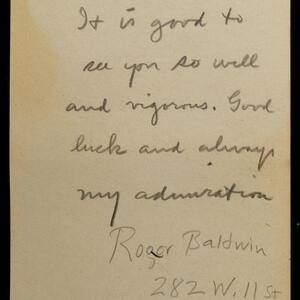 It is good to
see you so well
and vigorous. Good
luck and always
my admiration
Roger Baldwin
282 W. 11 St